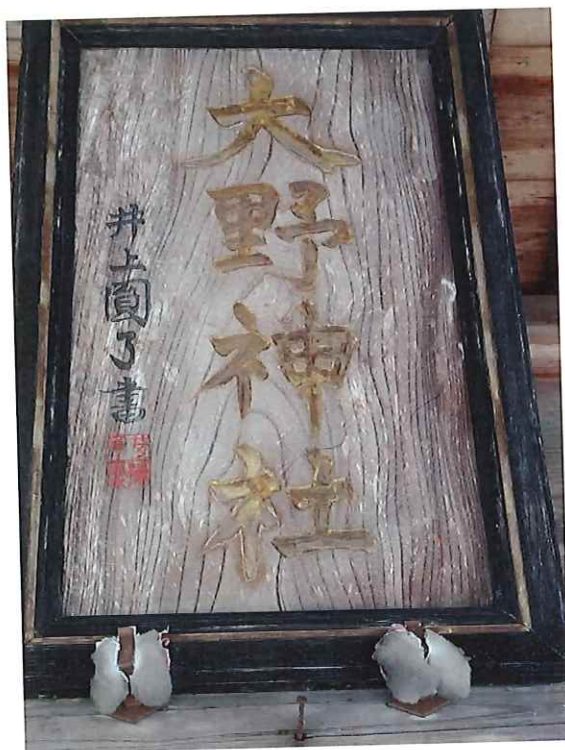 大野神社
井上圓了書